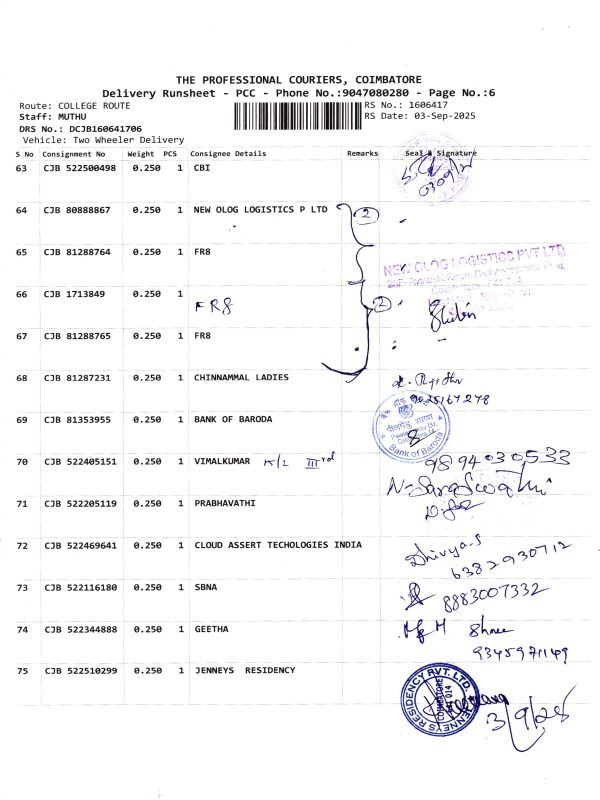 THE PROFESSIONAL COURIERS, COIMBATORE
Delivery Runsheet - PCC - Phone No.:9047080280 - Page No.:6
Route: COLLEGE ROUTE RS No.: 1606417
Staff: MUTHU RS Date: 03-Sep-2025
DRS No.: DCJB160641706
Vehicle: Two Wheeler Delivery
S No Consignment No Weight PCS Consignee Details Remarks Seal & Signature
63 CJB 522500498 0.250 1 CBI
64 CJB 80888867 0.250 1 NEW OLOG LOGISTICS P LTD 2
65 CJB 81288764 0.250 1 FR8
NEW OLOG LOGISTICS PVT LTD
66 CJB 1713849 0.250 1 FR8 2
67 CJB 81288765 0.250 1 FR8
68 CJB 81287231 0.250 1 CHINNAMMAL LADIES
9025167278
69 CJB 81353955 0.250 1 BANK OF BARODA
Bank of Baroda
70 CJB 522405151 0.250 1 VIMALKUMAR 15/2 IIIrd 9894030533
N. Saraswathi
71 CJB 522205119 0.250 1 PRABHAVATHI
72 CJB 522469641 0.250 1 CLOUD ASSERT TECHOLOGIES INDIA Dhivya.S
6382930712
73 CJB 522116180 0.250 1 SBNA 8883007332
74 CJB 522344888 0.250 1 GEETHA
9345971149
75 CJB 522510299 0.250 1 JENNEYS RESIDENCY
JENNEYS RESIDENCY PVT. LTD.
COIMBATORE
641 014
3/9/25